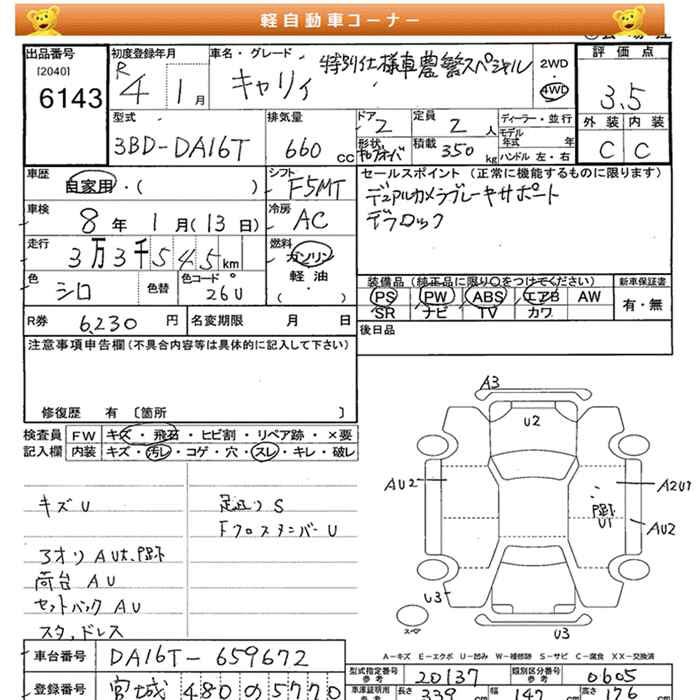 軽自動車コーナー
出品番号
[2040]
6143
初度登録年月
R 4 1月
車名・グレード
キャリイ 特別仕様車農繁スペシャル
2WD
・
4WD
評価点
3.5
外装 内装
C C
型式
3BD-DA16T
排気量
660 cc
ドア 2
形状
定員 2 人
積載 350 kg
ディーラー・並行
モデル
年式 年
ハンドル 左・右
車歴
自家用・( )
シフト
F5MT
車検
8年 1月(13日)
冷房
AC
走行
3万3千545km
燃料
ガソリン
・
軽油
・
( )
色
シロ
色替
色コード
26U
セールスポイント (正常に機能するものに限ります)
デュアルカメラブレーキサポート
デフロック
装備品 (純正品に限り○をつけてください)
PS PW ABS エアB AW
SR ナビ TV カワ
新車保証書
有・無
R券 6,230 円
名変期限 月 日
後日品
注意事項申告欄 (不具合内容等は具体的に記入して下さい)
修復歴 有 〔箇所 〕
検査員
記入欄
FW キズ・飛石・ヒビ割・リペア跡・×要
内装 キズ・汚レ・コゲ・穴・スレ・キレ・破レ
キズU
足廻りS
FクロスメンバーU
3オリAU大、凹跡
荷台AU
セットバックAU
スタッドレス
A3
U2
AU2
A2U1
凹跡
U1
AU2
U3
スペア
U3
A-キズ E-エクボ U-凹み W-補修跡 S-サビ C-腐食 XX-交換済
車台番号 DA16T-659672
型式指定番号
参考
20137
類別区分番号
参考
0605
登録番号 宮城 480 の 5770
車庫証明用
参考
長さ 339 cm
幅 147 cm
高さ